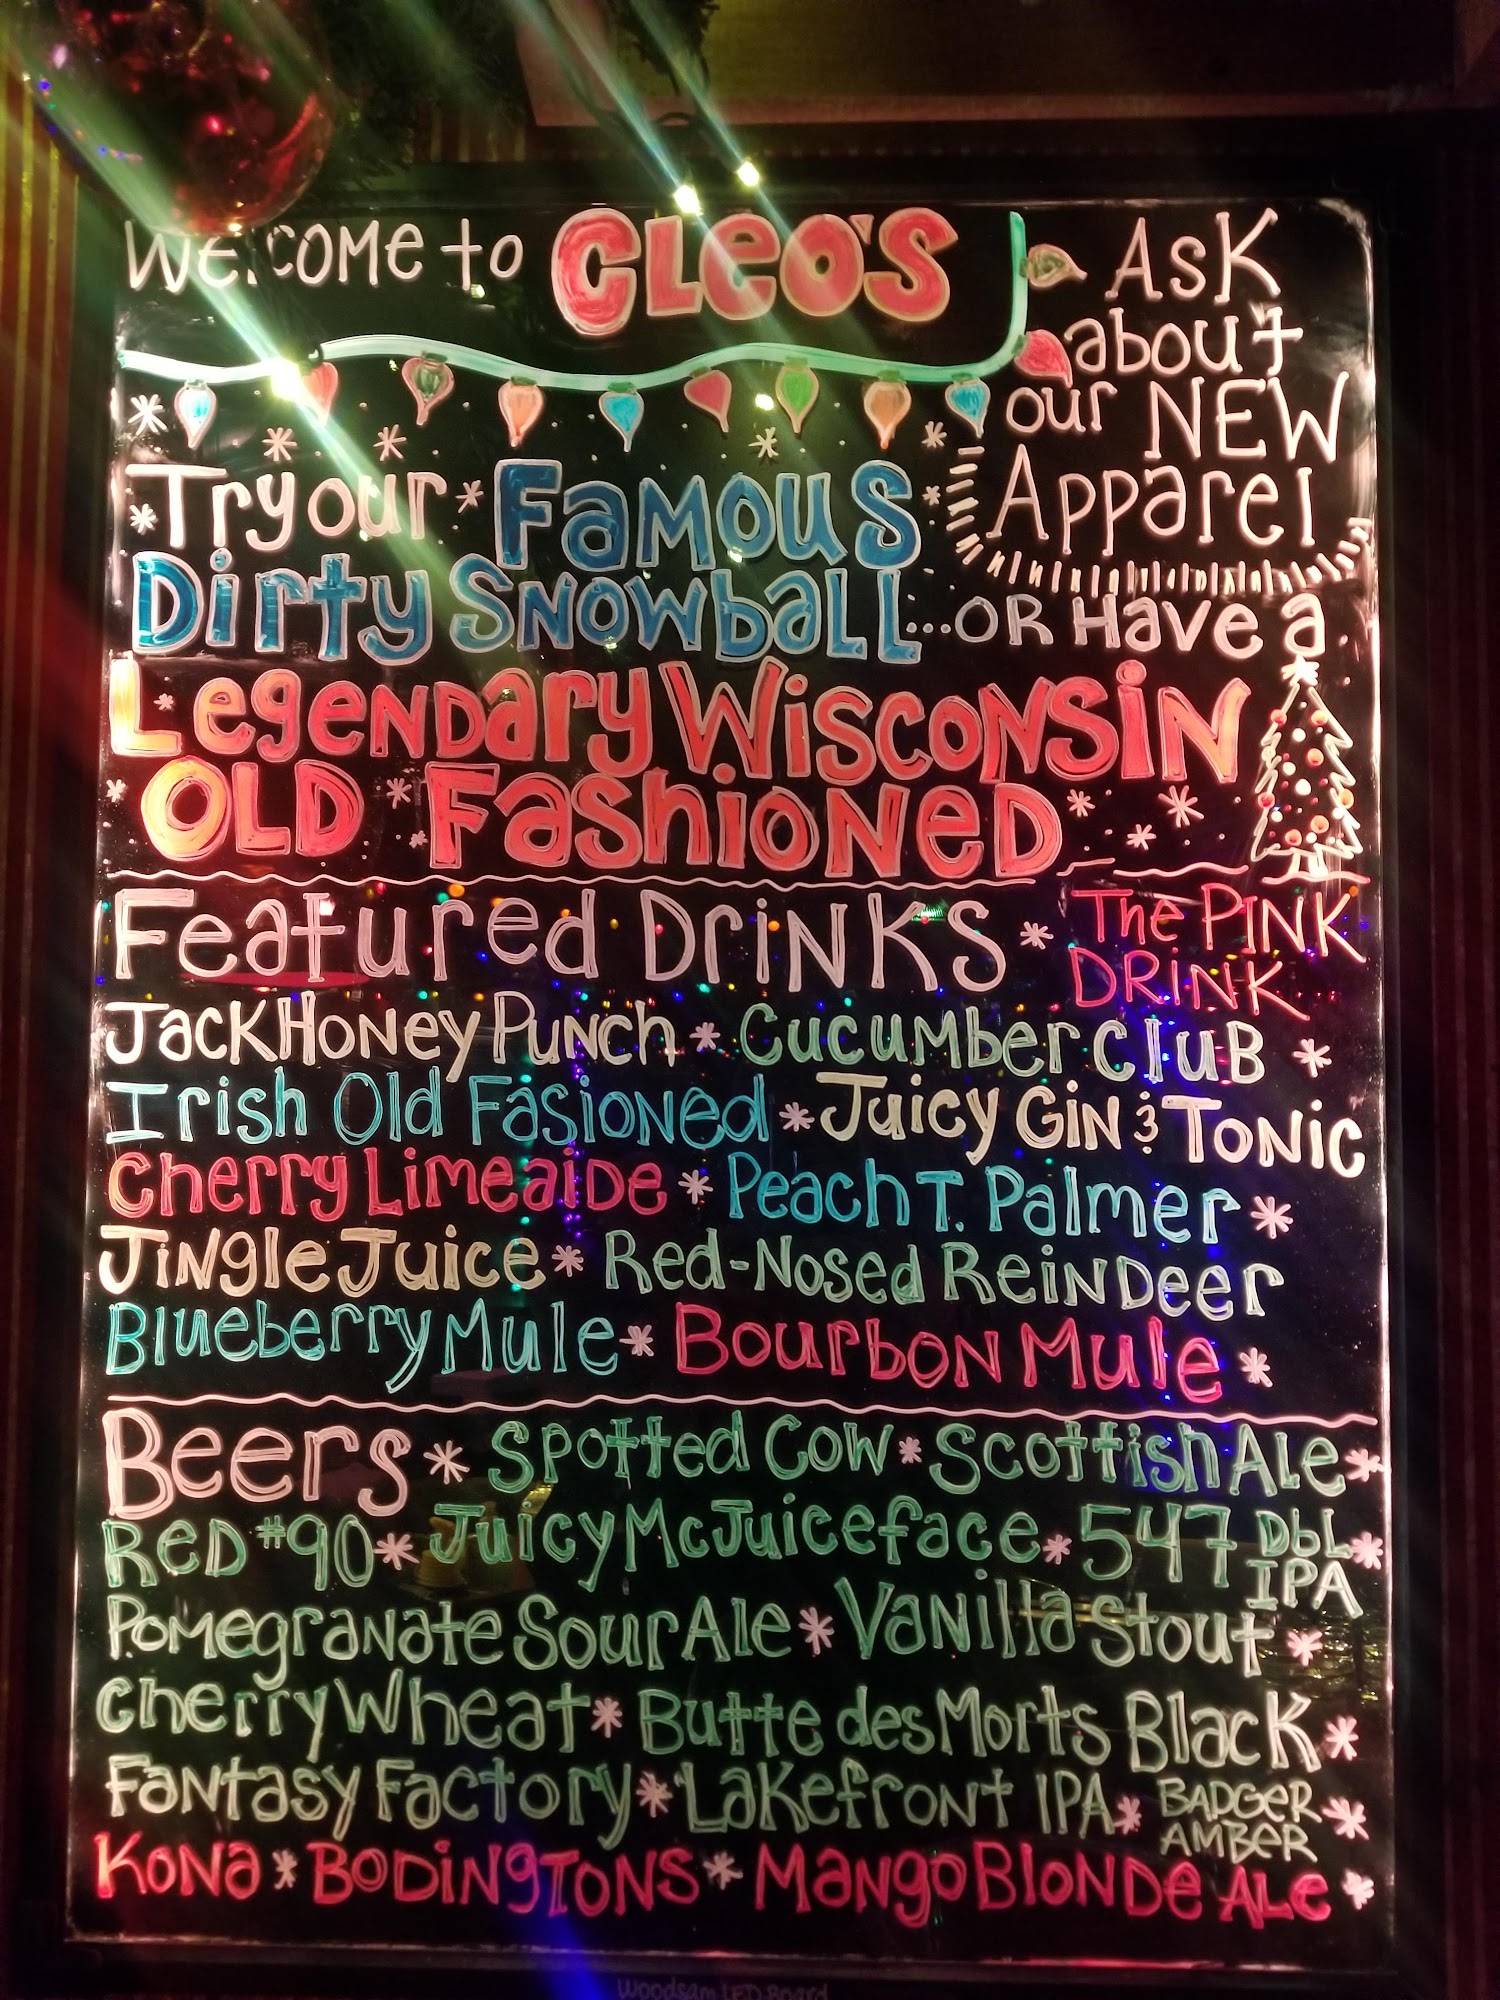 Welcome to CLEO'S
Ask
about
our NEW
Apparel
Try our Famous
Dirty Snowball...OR Have a
Legendary Wisconsin
OLD Fashioned
Featured Drinks * The PINK
DRINK
Jack Honey Punch * Cucumber Club *
Irish Old Fasioned * Juicy Gin & Tonic
Cherry Limeaide * Peach T. Palmer *
Jingle Juice * Red-Nosed Reindeer
Blueberry Mule * Bourbon Mule *
Beers * Spotted Cow * Scottish Ale *
Red #90 * Juicy McJuiceface * 547 DbL IPA *
Pomegranate Sour Ale * Vanilla Stout *
Cherry Wheat * Butte des Morts Black *
Fantasy Factory * Lakefront IPA * BADGER AMBER *
Kona * Bodingtons * Mango Blonde Ale *
Woodsam LED Board